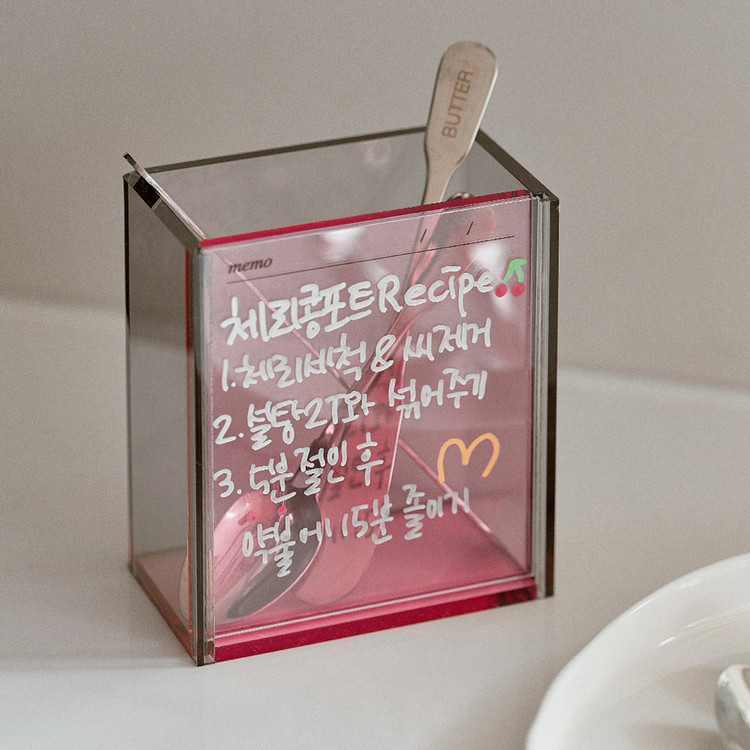 BUTTER
memo / /
체리콩포트 Recipe
1. 체리세척 & 씨제거
2. 설탕 2T와 섞어주기
3. 5분 절인 후
약불에 15분 졸이기